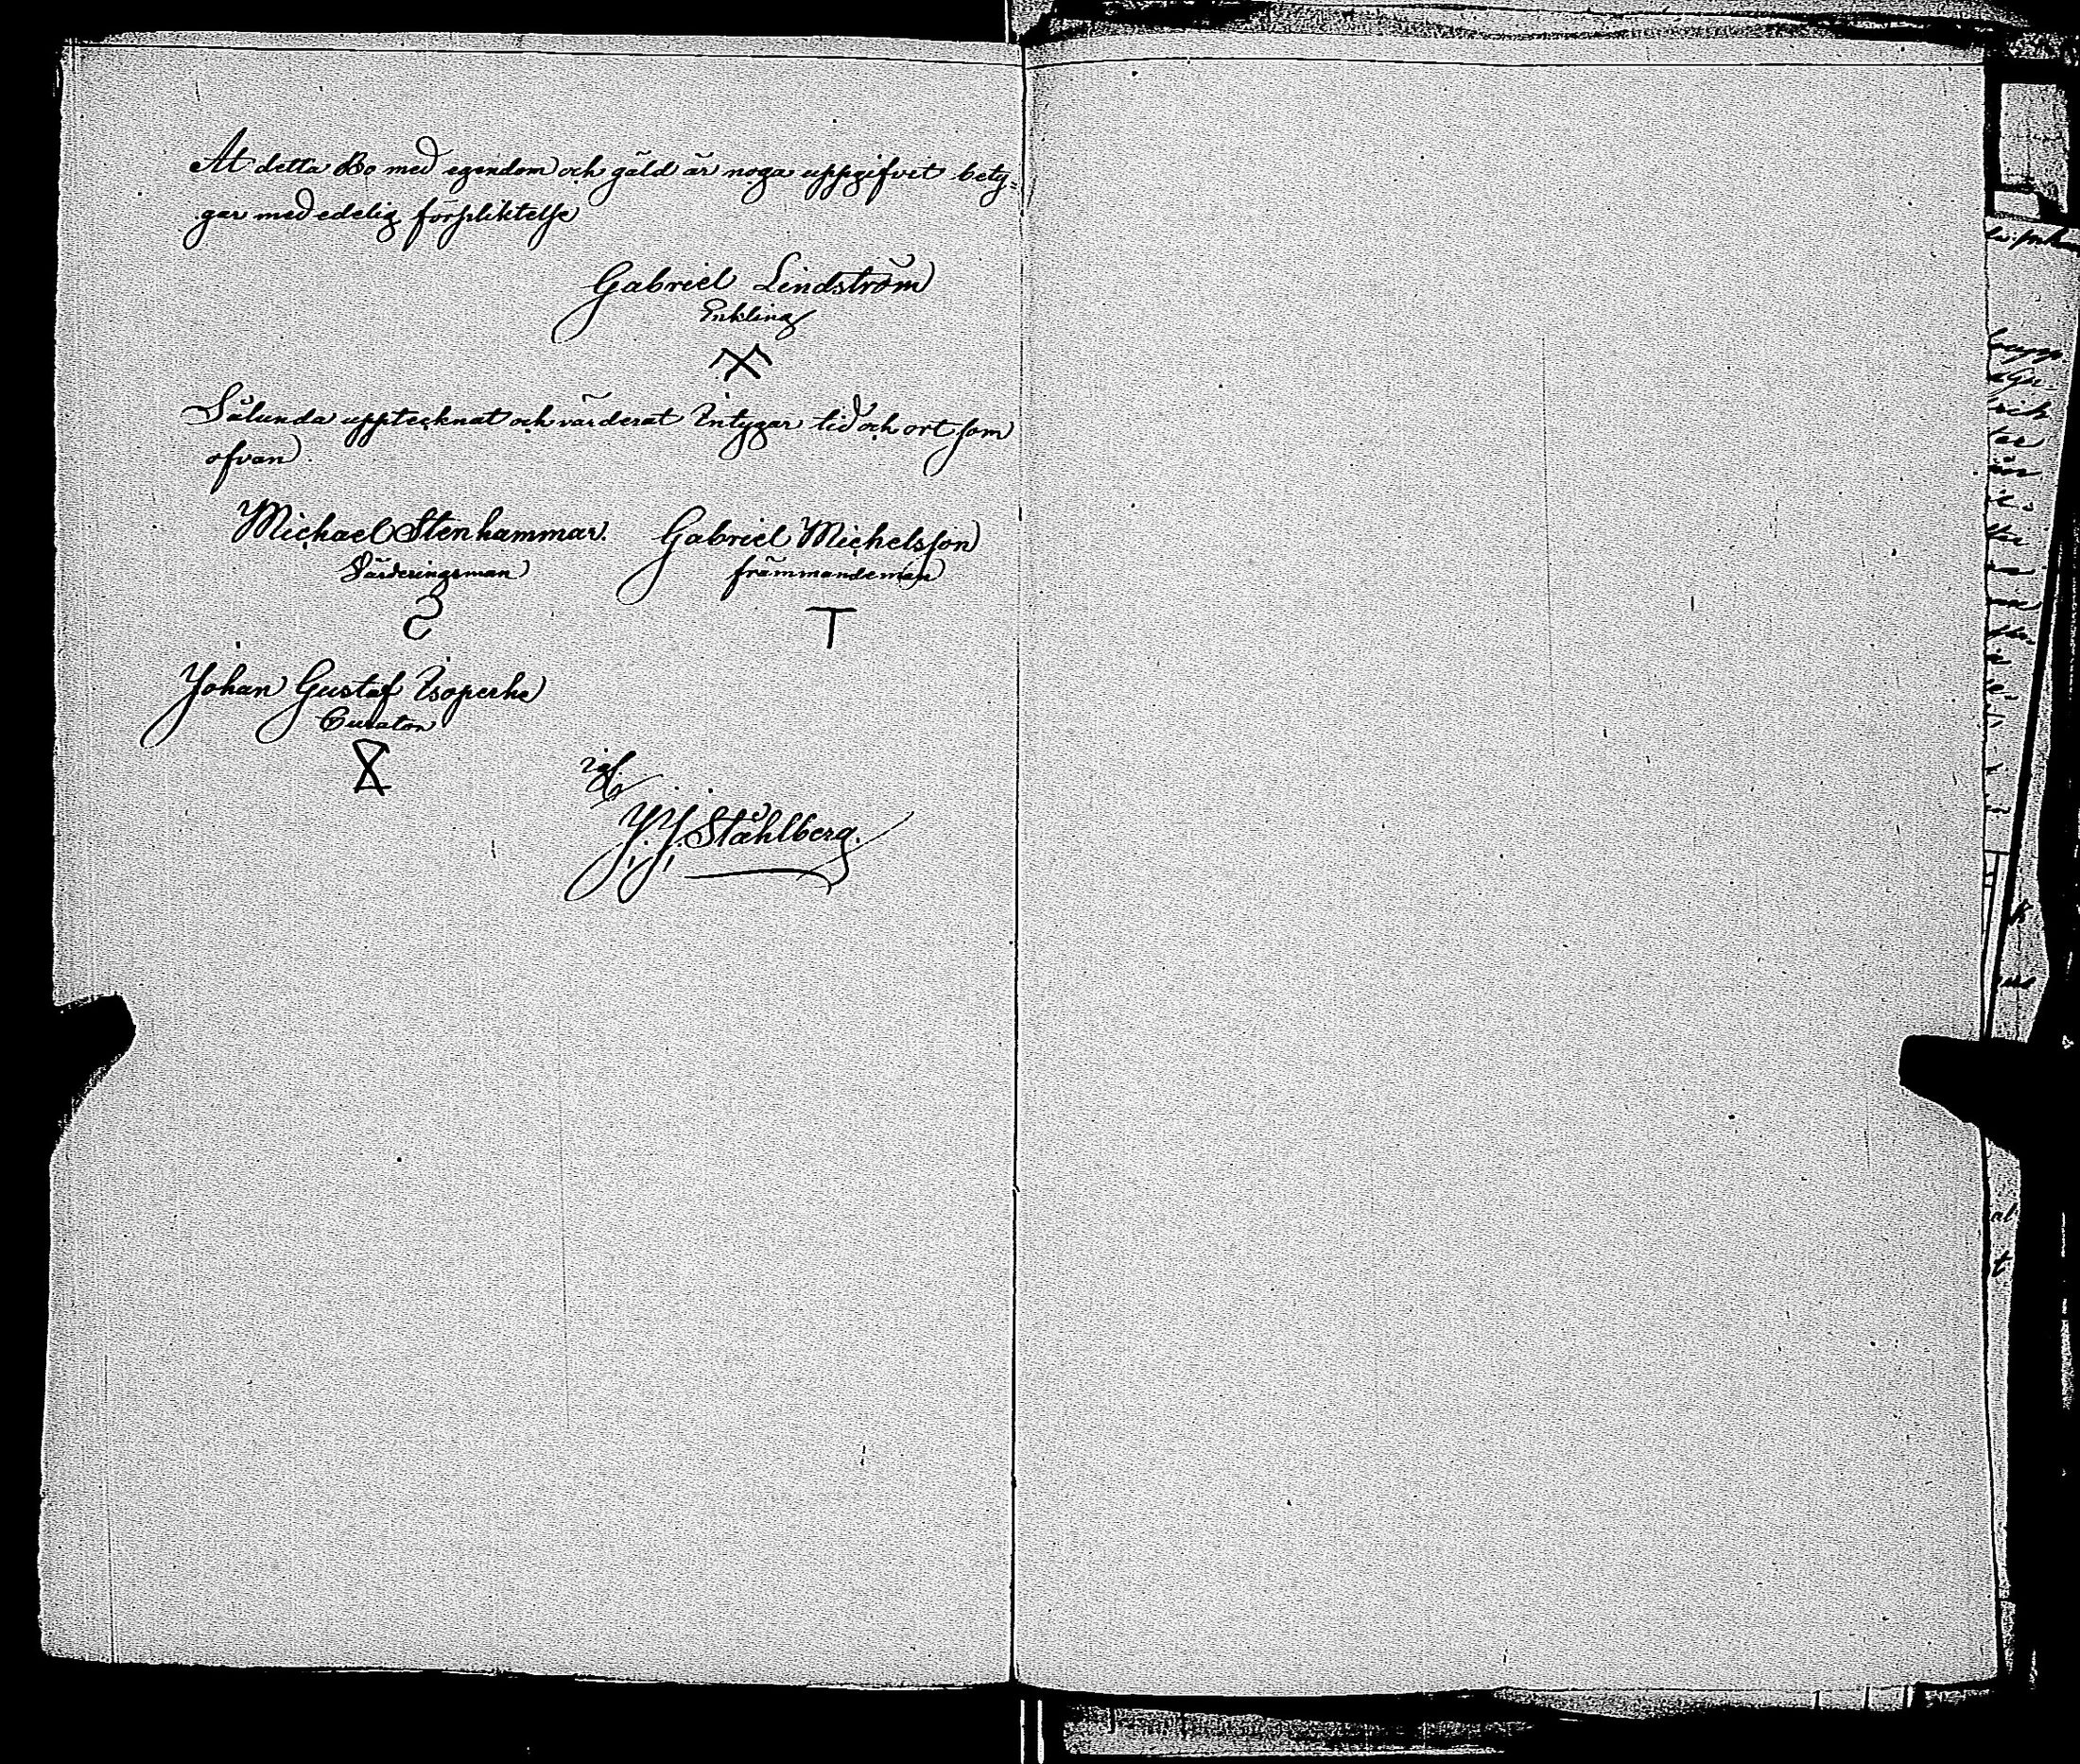 At detta Bo med egendom och gäld är noga uppgifvet bety=
gar med edelig förpliktelse
Gabriel Lindström
Enkling
Sålunda upptecknat och värderat Intygar tid och ort som
ofvan.
Michael Stenhammar. Gabriel Michelsson
Värderingsman främmandeman
T
Johan Gustaf Isoperhe
Curator
J. J. Ståhlberg.